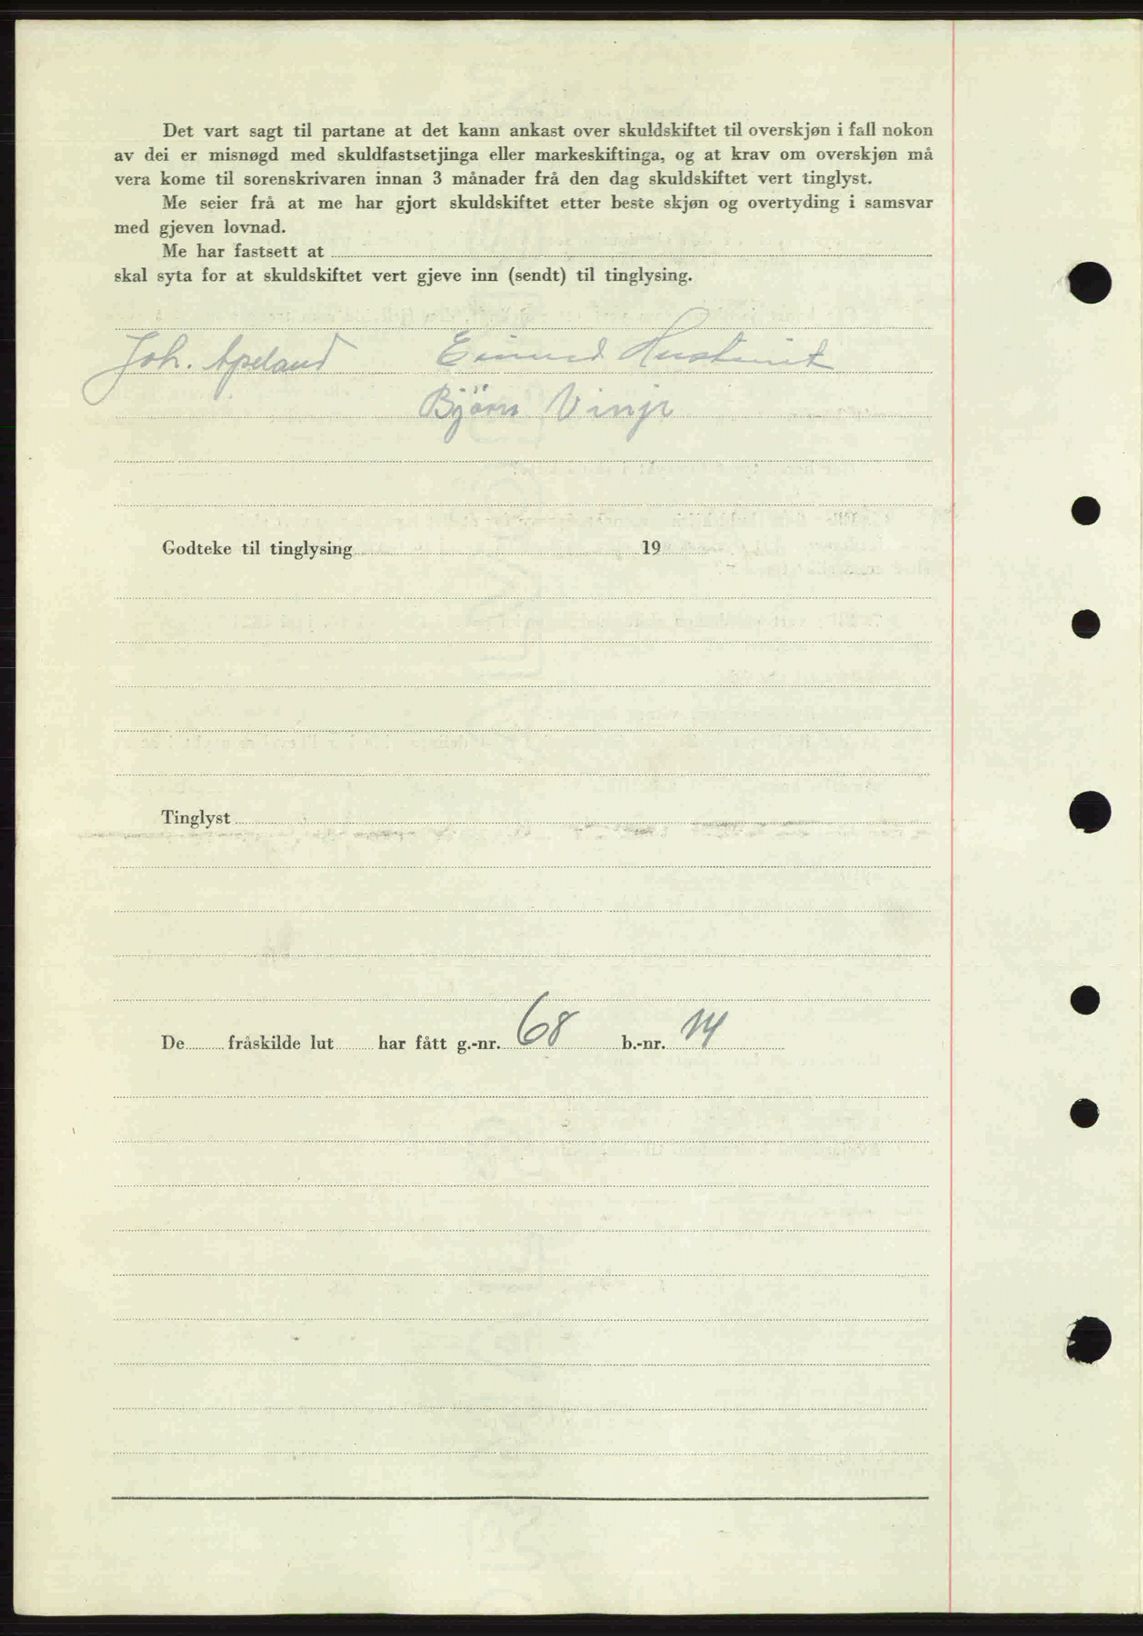 Det vart sagt til partane at det kann ankast over skuldskiftet til overskjøn i fall nokon
av dei er misnøgd med skuldfastsetjinga eller markeskiftinga, og at krav om overskjøn må
vera kome til sorenskrivaren innan 3 månader frå den dag skuldskiftet vert tinglyst.
Me seier frå at me har gjort skuldskiftet etter beste skjøn og overtyding i samsvar
med gjeven lovnad.
Me har fastsett at
skal syta for at skuldskiftet vert gjeve inn (sendt) til tinglysing.
Joh. Apeland
Björn Vinje
Godteke til tinglysing 19
Tinglyst
De fråskilde lut har fått g.-nr. 68 b.-nr. 14